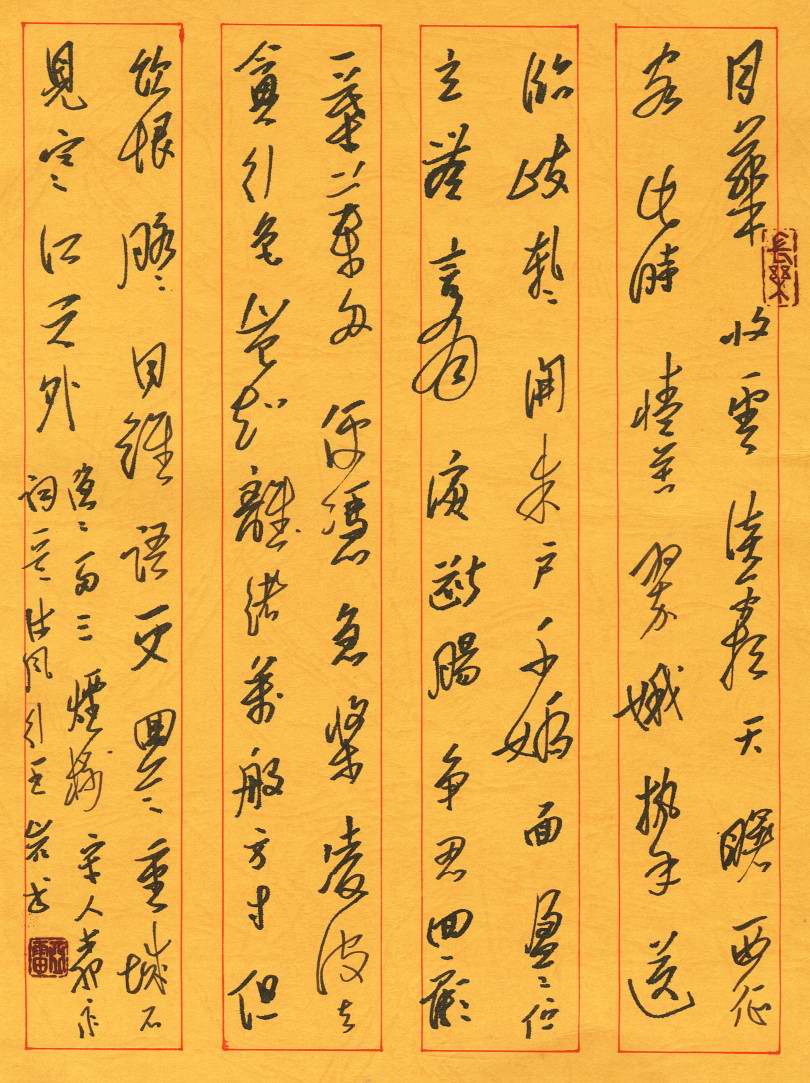 月華收雲淡霜天曙西征
客此時情苦翠娥執手送
臨歧軋々開朱戶千嬌面盈々佇
立無言有淚斷腸爭忍回顧
一葉蘭舟便恁急槳凌波去
貪行色豈知離緒萬般方寸但
飲恨脈々同誰語更回首重城不
見寒江天外
隱々兩三煙樹 宋人柳永
詞一首 岩书
長樂